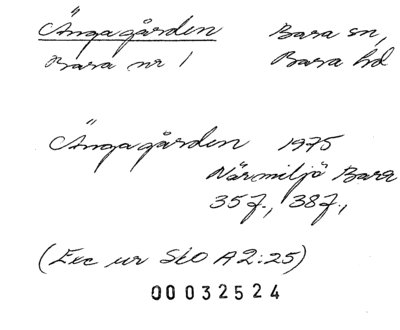 Ängagården Bara sn,
Bara nr 1 Bara hd
Ängagården 1975
Närmiljö Bara
35 f., 38 f.,
(Exc ur SkO A2:25)
00032524